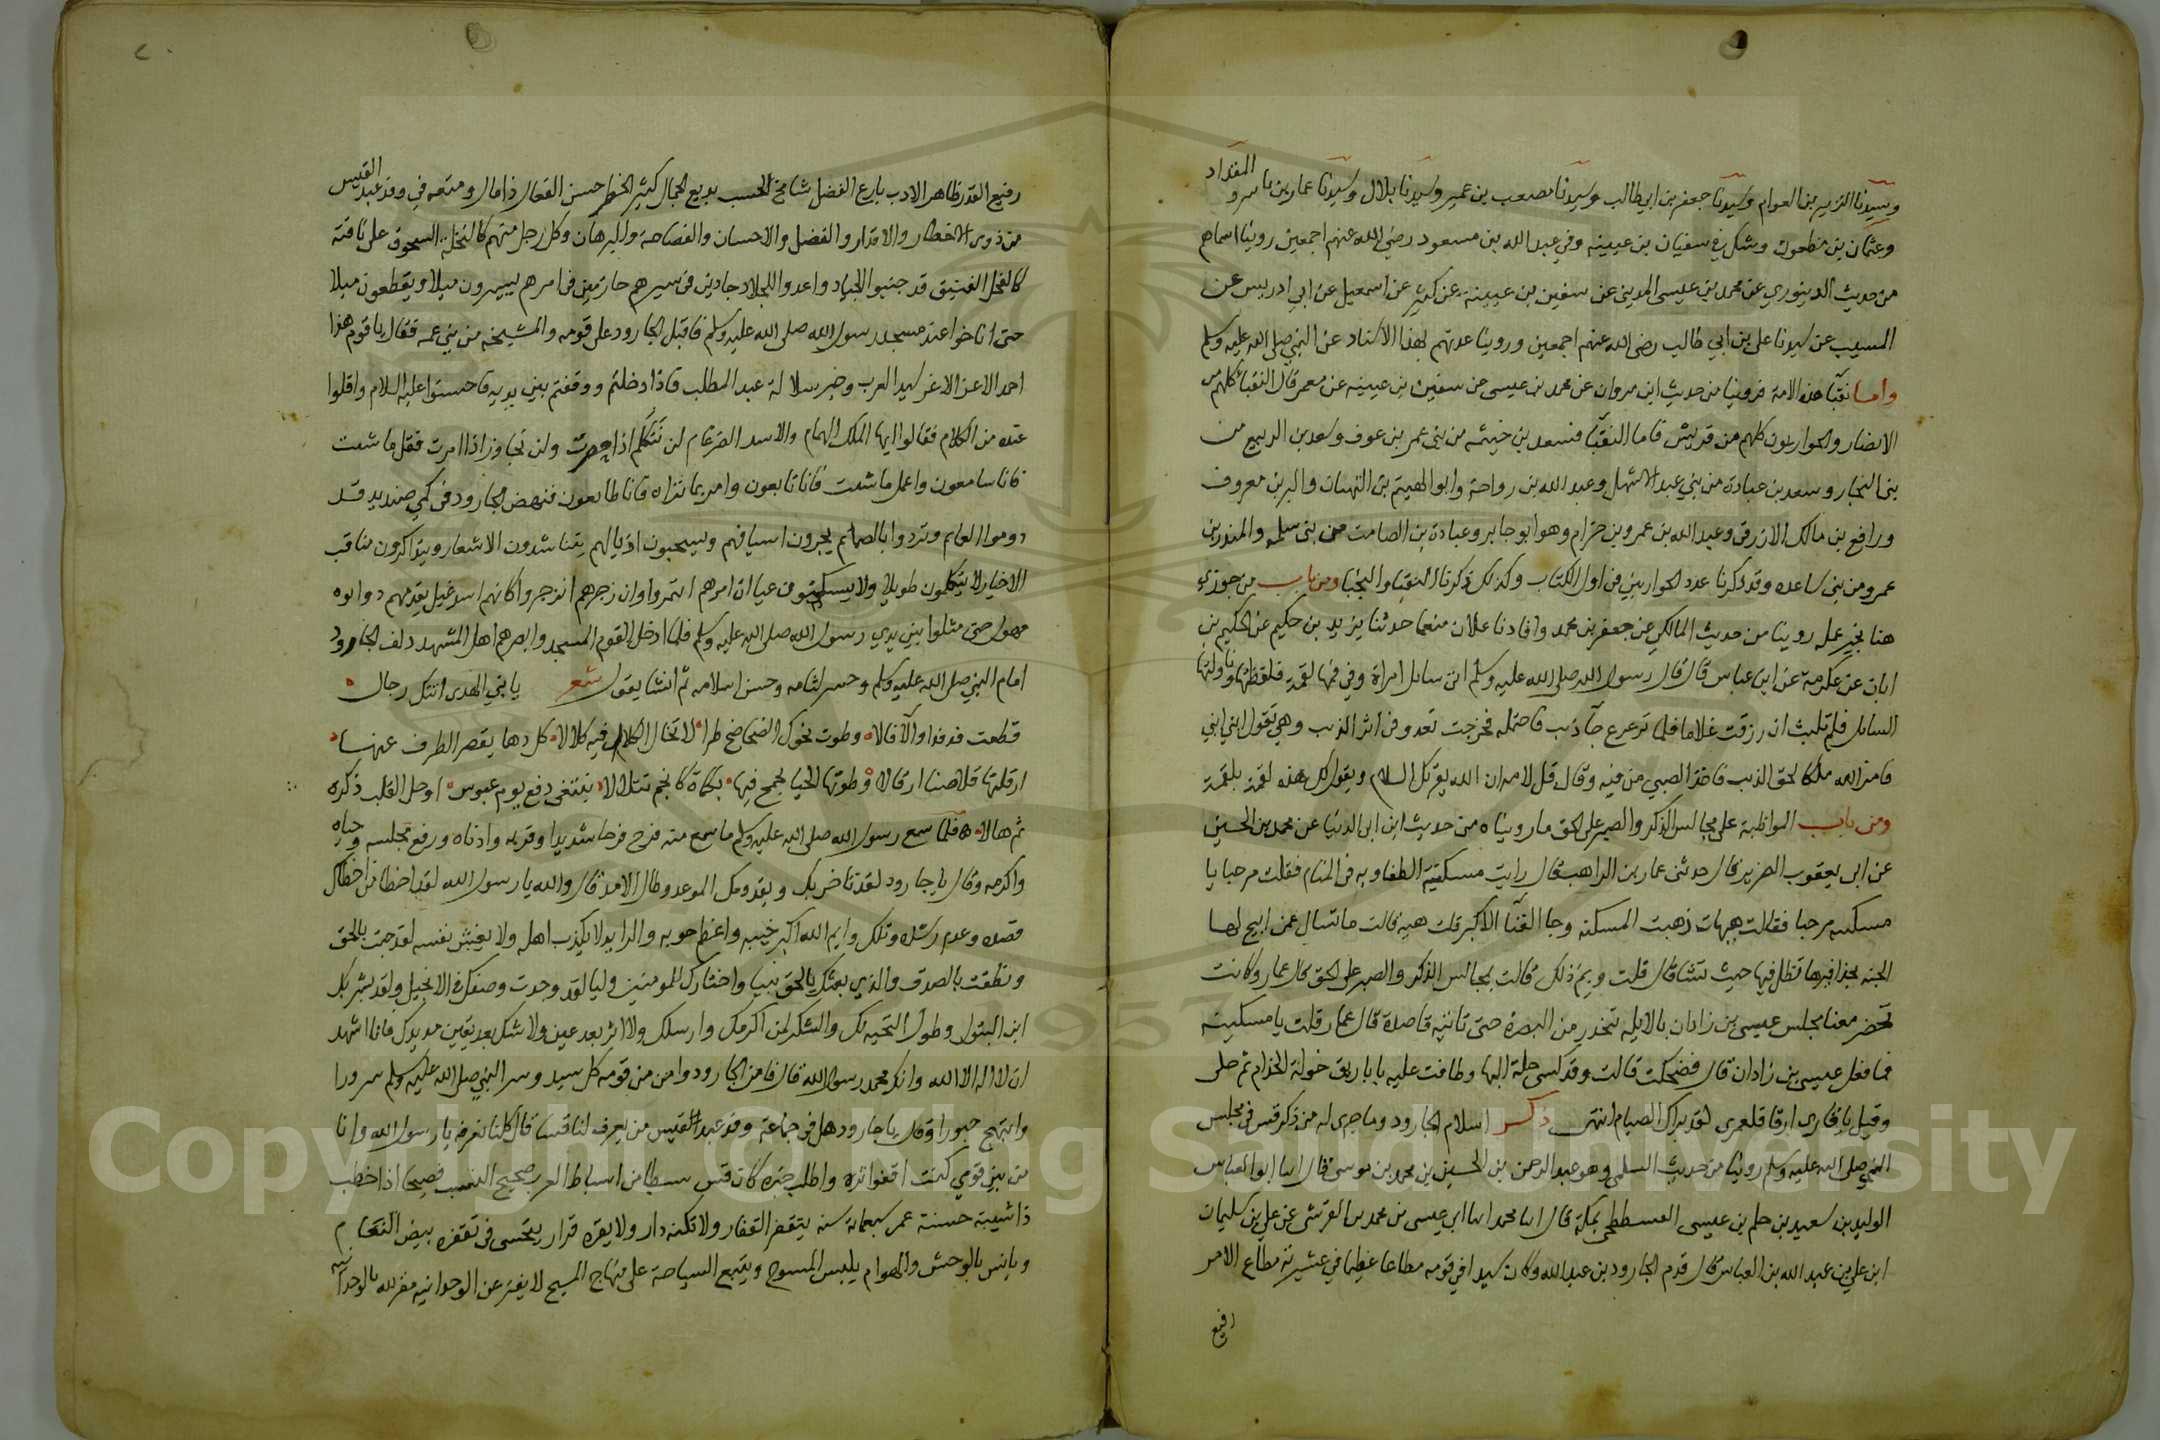 وسيدنا الزبير بن العوام وسيدنا جعفر بن ابي طالب وسيدنا مصعب بن عمير وسيدنا بلال وسيدنا عمار بن ياسر والمقداد
وعثمان بن مظعون وشك في سفيان بن عيينه وفي عبد الله بن مسعود رضي الله عنهم اجمعين روينا اسماهم
من حديث الدينوري عن محمد بن عيسى المديني عن سفين بن عيينة عن كثير عن اسمعيل عن ابي ادريس عن
المسيب عن سيدنا على بن ابي طالب رضى الله عنهم اجمعين وروينا عدتهم بهذا الاسناد عن النبي صلى الله عليه وسلم
واما نقبآ هذه الامة فروينا من حديث ابن مروان عن محمد بن عيسى عن سفين بن عيينه عن معمر قال النقباء كلهم من
الانصار والحواريون كلهم من قريش فاما النقبآ فسعد بن خيثمه من بني عمر بن عوف وسعد بن الربيع من
بنى النجار وسعد بن عبادة من بني عبد الاشهل وعبد الله بن رواحة وابو الهيثم بن التيهان والبر بن معروف
ورافع بن مالك الازرقى وعبد الله بن عمرو بن حزام وهو ابو جابر وعبادة بن الصامت من بنى سلمه والمنذر بن
عمرو من بنى ساعده وقد ذكرنا عدد الحواريين في اول الكتاب وكذلك ذكرنا النقبا والنجبا ومن باب من جوزي
هنا بخير عمله روينا من حديث المالكي عن جعفر بن محمد وافادنا علان منعما حدثنا يزيد بن حكيم عن الحكيم بن
ابان عن عكرمة عن ابن عباس قال قال رسول الله صلى الله عليه وسلم ان سائل امراة وفي فمها لقمة فلفظتها وناولتها
السائل فلم تلبث ان رزقت غلاما فلما ترعرع جآ ذئب فاحتمله فخرجت تعدو في اثر الذيب وهي تقول ابني ابني
فامر الله ملكا لحق الذيب فاخذ الصبي من فيه وقال قل لامه ان الله يقرئك السلام ويقول لك هذه لقمة بلقمة
ومن باب المواظبة على مجالس الذكر والصبر على الحق ما رويناه من حديث ابن ابى الدنيا عن محمد بن الحسين
عن ابى يعقوب الضرير قال حدثنى عمار بن الراهب قال رايت مسكينة الطفاويه في المنام فقلت مرحبا يا
مسكينه مرحبا فقالت هيهات ذهبت المسكنه وجا الغنآ الاكبر قلت هيه قالت ما تسال عمن ابيح لها
الجنه بحذافيرها تظل فيها حيث تشا قال قلت وبم ذلك قالت بمجالس الذكر والصبر على الحق قال عمار وكانت
تحضر معنا مجلس عيسى بن زاذان بالابله تنحدر من البصرة حتى تاتيه قاصدة قال عمار قلت يا مسكينه
فما فعل عيسى بن زاذان قال فضحكت قالت وقد كسى حلة البها وطافت عليه باباريق حوله الخدام ثم حلى
وقيل يا قارى ارقا فلعمرى لقد براك الصيام انتهى ذكر اسلام الجارود وما جرى له من ذكر قس في مجلس
النبي صلى الله عليه وسلم روينا من حديث السلمى وهو عبد الرحمن بن الحسين بن محمد بن موسى قال انبا ابو العباس
الوليد بن سعيد بن حلم بن عيسى الفسطى بمكة قال انبا محمد انبا ابي عيسى بن محمد بن القرشى عن علي بن سليمان
ابن علي بن عبد الله بن العباس قال قدم الجارود بن عبد الله وكان سيدا في قومه مطاعا عظيما في عشيرته مطاع الامر
رفيع
رفيع القدر ظاهر الادب بارع الفضل شامخ الحسب بديع الجمال كثير الخطر حسن الفعال ذا مال ومنعه في وفد عبد القيس
من ذوى الاخطار والاقدار والفضل والاحسان والفصاحة والبرهان وكل رجل منهم كالنخلة السحوق على ناقة
كالفحل الفنيق قد جنبوا الجياد واعدوا للجلاد جادين في سيرهم حازمين في امرهم يسيرون ميلا ويقطعون ميلا
حتى اناخوا عند مسجد رسول الله صلى الله عليه وسلم فاقبل الجارود على قومه والمشيخه من بني عمه فقال يا قوم هذا
احمد الاعز الاغر سيد العرب وخير سلالة عبد المطلب فاذا دخلتم ووقفتم بين يديه فاحسنوا عليه السلام واقلوا
عنده من الكلام فقالوا ايها الملك الهمام والاسد الضرغام لن نتكلم اذا حضرت ولن نجاوز اذا امرت فقل ما شئت
فانا سامعون واعمل ما شئت فانا تابعون وامر بما تراه فانا طايعون فنهض الجارود في كمي صنديد قد
دوموا العمايم وتردوا بالصمايم يجرون اسيافهم ويسحبون اذيالهم يتناشدون الاشعار ويتذاكرون مناقب
الاخيار لا يتكلمون طويلا ولا يسكتون عيا ان امرهم ائتمروا وان زجرهم انزجروا كانهم اسد غيل يقدمهم
مهول حتى مثلوا بين يدي رسول الله صلى الله عليه وسلم فلما دخل القوم المسجد وابصرهم اهل المشهد دلف الجارود
امام النبي صلى الله عليه وسلم وحسر لثامه وحسن اسلامه ثم انشا يقول شعر يا نبي الهدى اتتك رجال
قطعت فدفدا والآ فالا وطوت نحوك الضحاضح طرا لا تخال الكلال فيه كلالا كل دهما يقصر الطرف عنها
ارقلتها قلاصنا ارقالا وطوتها الجياد يجمح فيها بكماة كانجم تتلالا يبتغى دفع يوم عبوس اوجل القلب ذكره
ثم هالا فلما سمع رسول الله صلى الله عليه وسلم ما سمع منه فرح فرحا شديدا وقربه وادناه ورفع مجلسه وحياه
واكرمه وقال يا جارود لقد تاخر بك وبقومك الموعد وطال الامد قال والله يا رسول الله لقد اخطا من اخطاك
قصده وعدم رشده وتلك وايم الله اكبر خيبه واعظم حوبه والرايد لا يكذب اهله ولا يغش نفسه لقد جيت بالحق
ونطقت بالصدق والذي بعثك بالحق نبيا واختارك للمومنين وليا لقد وجدت وصفك في الانجيل ولقد بشر بك
ابن البتول وطول التحيه لك والشكر لمن اكرمك وارسلك ولا اثر بعد عين ولا شك بعد يقين مد يدك فانا اشهد
ان لا اله الا الله وانك محمد رسول الله قال فامن الجارود وامن من قومه كل سيد وسر النبي صلى الله عليه وسلم سرورا
وابتهج حبورا وقال يا جارود هل في جماعة وفد عبد القيس من يعرف لنا قسا قال كلنا نعرفه يا رسول الله وانا
من بين قومي كنت اقفوا اثره واطلب خبره كان قس سبطا من اسباط العرب صحيح النسب فصيحا اذا خطب
ذا شيبة حسنة عمر سبعماية سنه يتقفر القفار ولا تكنه دار ولا يقره قرار يتحسى في تقفره بيض النعام
ويانس بالوحش والهوام يلبس المسوح ويتبع السياحة على منهاج المسيح لا يفتر عن الوحدانيه مقر لله بالوحدانيه
Copyright © King Saud University
1957